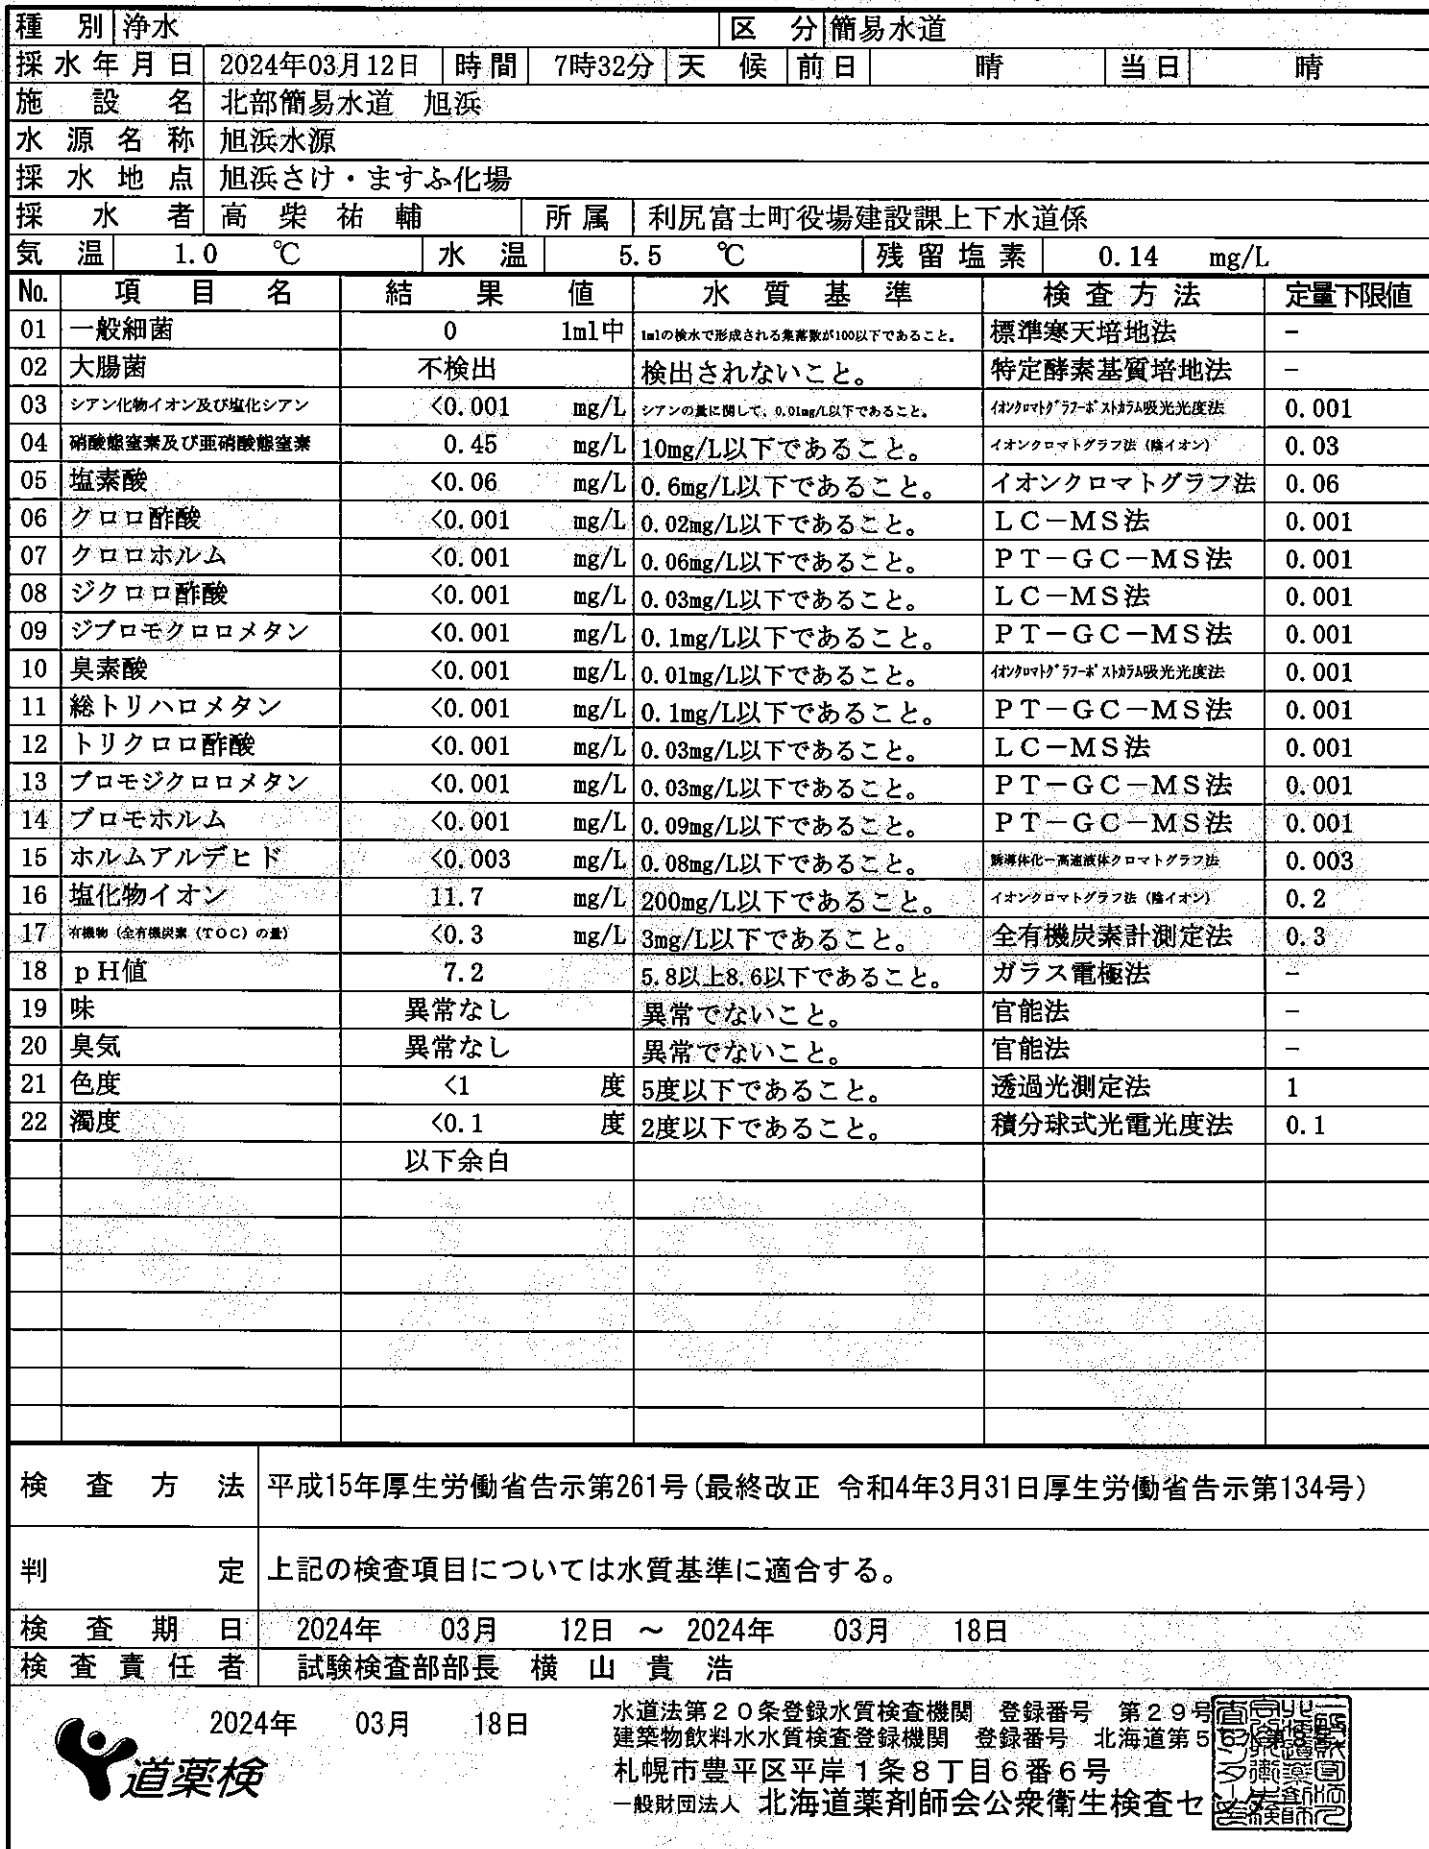 種別 浄水 区分 簡易水道
採水年月日 2024年03月12日 時間 7時32分 天候 前日 晴 当日 晴
施設名 北部簡易水道 旭浜
水源名称 旭浜水源
採水地点 旭浜さけ・ますふ化場
採水者 高柴祐輔 所属 利尻富士町役場建設課上下水道係
気温 1.0 ℃ 水温 5.5 ℃ 残留塩素 0.14 mg/L
No. 項目名 結果値 水質基準 検査方法 定量下限値
01 一般細菌 0 1ml中 1mlの検水で形成される集落数が100以下であること。 標準寒天培地法 −
02 大腸菌 不検出 検出されないこと。 特定酵素基質培地法 −
03 シアン化物イオン及び塩化シアン <0.001 mg/L シアンの量に関して、0.01mg/L以下であること。 イオンクロマトグラフーポストカラム吸光光度法 0.001
04 硝酸態窒素及び亜硝酸態窒素 0.45 mg/L 10mg/L以下であること。 イオンクロマトグラフ法（陰イオン） 0.03
05 塩素酸 <0.06 mg/L 0.6mg/L以下であること。 イオンクロマトグラフ法 0.06
06 クロロ酢酸 <0.001 mg/L 0.02mg/L以下であること。 ＬＣ−ＭＳ法 0.001
07 クロロホルム <0.001 mg/L 0.06mg/L以下であること。 ＰＴ−ＧＣ−ＭＳ法 0.001
08 ジクロロ酢酸 <0.001 mg/L 0.03mg/L以下であること。 ＬＣ−ＭＳ法 0.001
09 ジブロモクロロメタン <0.001 mg/L 0.1mg/L以下であること。 ＰＴ−ＧＣ−ＭＳ法 0.001
10 臭素酸 <0.001 mg/L 0.01mg/L以下であること。 イオンクロマトグラフーポストカラム吸光光度法 0.001
11 総トリハロメタン <0.001 mg/L 0.1mg/L以下であること。 ＰＴ−ＧＣ−ＭＳ法 0.001
12 トリクロロ酢酸 <0.001 mg/L 0.03mg/L以下であること。 ＬＣ−ＭＳ法 0.001
13 ブロモジクロロメタン <0.001 mg/L 0.03mg/L以下であること。 ＰＴ−ＧＣ−ＭＳ法 0.001
14 ブロモホルム <0.001 mg/L 0.09mg/L以下であること。 ＰＴ−ＧＣ−ＭＳ法 0.001
15 ホルムアルデヒド <0.003 mg/L 0.08mg/L以下であること。 誘導体化−高速液体クロマトグラフ法 0.003
16 塩化物イオン 11.7 mg/L 200mg/L以下であること。 イオンクロマトグラフ法（陰イオン） 0.2
17 有機物（全有機炭素（ＴＯＣ）の量） <0.3 mg/L 3mg/L以下であること。 全有機炭素計測定法 0.3
18 ｐＨ値 7.2 5.8以上8.6以下であること。 ガラス電極法 −
19 味 異常なし 異常でないこと。 官能法 −
20 臭気 異常なし 異常でないこと。 官能法 −
21 色度 <1 度 5度以下であること。 透過光測定法 1
22 濁度 <0.1 度 2度以下であること。 積分球式光電光度法 0.1
以下余白
検査方法 平成15年厚生労働省告示第261号(最終改正 令和4年3月31日厚生労働省告示第134号)
判定 上記の検査項目については水質基準に適合する。
検査期日 2024年 03月 12日 ～ 2024年 03月 18日
検査責任者 試験検査部部長 横山貴浩
2024年 03月 18日
道薬検
水道法第２０条登録水質検査機関 登録番号 第２９号
建築物飲料水水質検査登録機関 登録番号 北海道第５６水第８号
札幌市豊平区平岸１条８丁目６番６号
一般財団法人 北海道薬剤師会公衆衛生検査センター